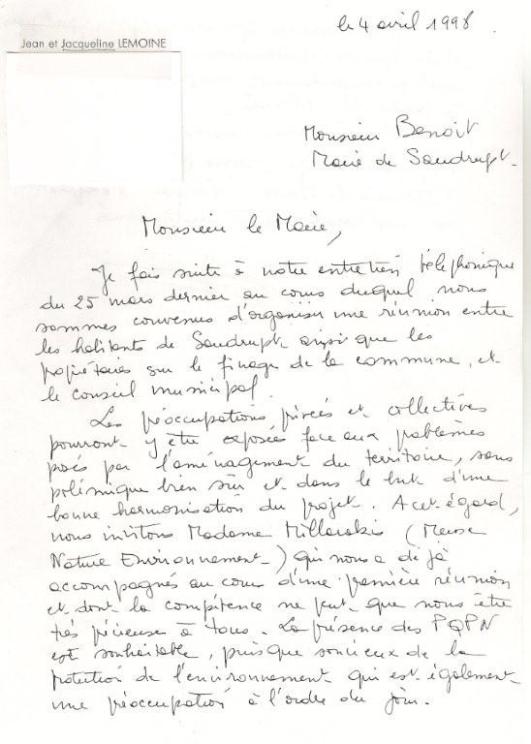 le 4 avril 1998.
Jean et Jacqueline LEMOINE
Monsieur Benoit
Maire de Saudrupt
Monsieur le Maire,
Je fais suite à notre entretien téléphonique
du 25 mars dernier au cours duquel nous
sommes convenus d'organiser une réunion entre
les habitants de Saudrupt ainsi que les
propriétaires sur le finage de la commune, et
le conseil municipal.
Les préoccupations privées et collectives
pourront y être exposées face aux problèmes
posés par l'aménagement du territoire, sans
polémique bien sûr et dans le but d'une
bonne harmonisation du projet. A cet égard,
nous invitons Madame (Meuse
Nature Environnement) qui nous a déjà
accompagnés au cours d'une première réunion
et dont la compétence ne peut que nous être
très précieuse à tous. La présence des PQPN
est souhaitable, puisque soucieux de la
protection de l'environnement qui est également
une préoccupation à l'ordre du jour.